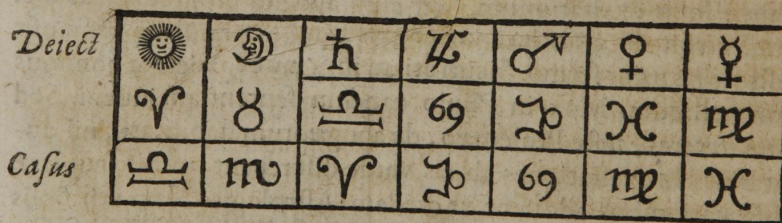 Deiect ☉ ☽ ♄ ♃ ♂ ♀ ☿
♈ ♉ ♎ ♋ ♑ ♓ ♍
Caſus ♎ ♏ ♈ ♑ ♋ ♍ ♓